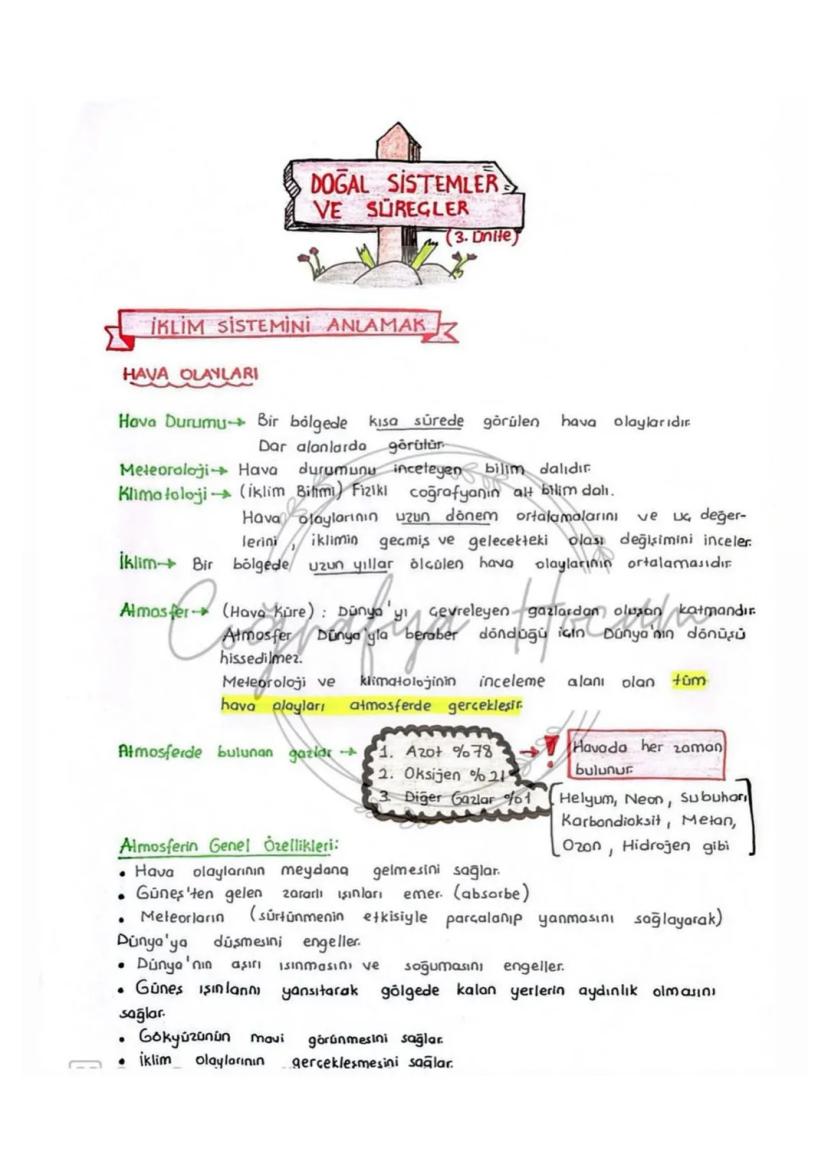 DOĞAL SİSTEMLER
VE SÜREÇLER
(3. Ünite)
İKLİM SİSTEMİNİ ANLAMAK
HAVA OLAYLARI
Hava Durumu→ Bir bölgede kısa sürede görülen hava olaylarıdır.
Dar alanlarda görülür.
Meteoroloji→ Hava durumunu inceleyen bilim dalıdır.
Klimatoloji→ (İklim Bilimi) Fiziki coğrafyanın alt bilim dalı.
Hava olaylarının uzun dönem ortalamalarını ve uç değer-
lerini, iklimin geçmiş ve gelecekteki olası değişimini inceler.
İklim→ Bir bölgede uzun yıllar ölçülen hava olaylarının ortalamasıdır.
Atmosfer→ (Hava Küre) : Dünya'yı çevreleyen gazlardan oluşan katmandır.
Atmosfer Dünya'yla beraber döndüğü için Dünya'nın dönüşü
hissedilmez.
Meteoroloji ve klimatolojinin inceleme alanı olan tüm
hava olayları atmosferde gerçekleşir.
Coğrafya Hocam
Atmosferde bulunan gazlar→
1. Azot %78
2. Oksijen %21
3. Diğer Gazlar %1
→ ! Havada her zaman
bulunur.
[Helyum, Neon, Su buharı
Karbondioksit, Metan,
Ozon, Hidrojen gibi]
Atmosferin Genel Özellikleri:
• Hava olaylarının meydana gelmesini sağlar.
• Güneş'ten gelen zararlı ışınları emer. (absorbe)
• Meteorların (sürtünmenin etkisiyle parçalanıp yanmasını sağlayarak)
Dünya'ya düşmesini engeller.
• Dünya'nın aşırı ısınmasını ve soğumasını engeller.
• Güneş ışınlarını yansıtarak gölgede kalan yerlerin aydınlık olmasını
sağlar.
• Gökyüzünün mavi görünmesini sağlar.
• İklim olaylarının gerçekleşmesini sağlar.